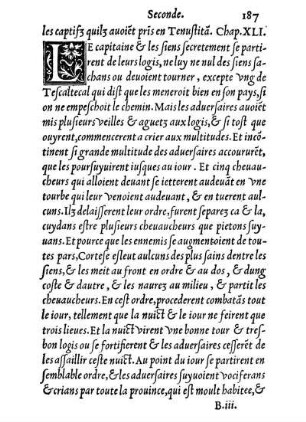 Seconde. 187
les captifz quilz auoiēt pris en Tenustitā. Chap. XLI.
LE capitaine & les siens secretement se parti-
rent de leurs logis, ne luy ne nul des siens sa-
chans ou deuoient tourner, excepte vng de
Tescaltecal qui dist que les meneroit bien en son pays, si
on ne empeschoit le chemin. Mais les aduersaires auoiēt
mis plusieurs veilles & aguetz aux logis, & si tost que
ouyrent, commencerent a crier aux multitudes. Et incō-
tinent si grande multitude des aduersaires accoururēt,
que les poursuyuirent iusques au iour. Et cinq cheuau-
cheurs qui alloient deuant se ietterent audeuāt en vne
tourbe qui leur venoient audeuant, & en tuerent aul-
cuns. Ilz delaisserent leur ordre, furent separez ca & la,
cuydans estre plusieurs cheuaucheurs que pietons suy-
uans. Et pource que les ennemis se augmentoient de tou-
tes pars, Cortese esleut aulcuns des plus sains dentre les
siens, & les meit au front en ordre & au dos, & dung
coste & dautre, & les naurez au milieu, & partit les
cheuaucheurs. En cest ordre, procederent combatās tout
le iour, tellement que la nuict & le iour ne feirent que
trois lieues. Et la nuict virent vne bonne tour & tres-
bon logis ou se fortifierent & les aduersaires cesserēt de
les assaillir ceste nuict. Au point du iour se partirent en
semblable ordre, & les aduersaires suyuoient vociferans
& crians par toute la prouince, qui est moult habitee, &
B.iii.